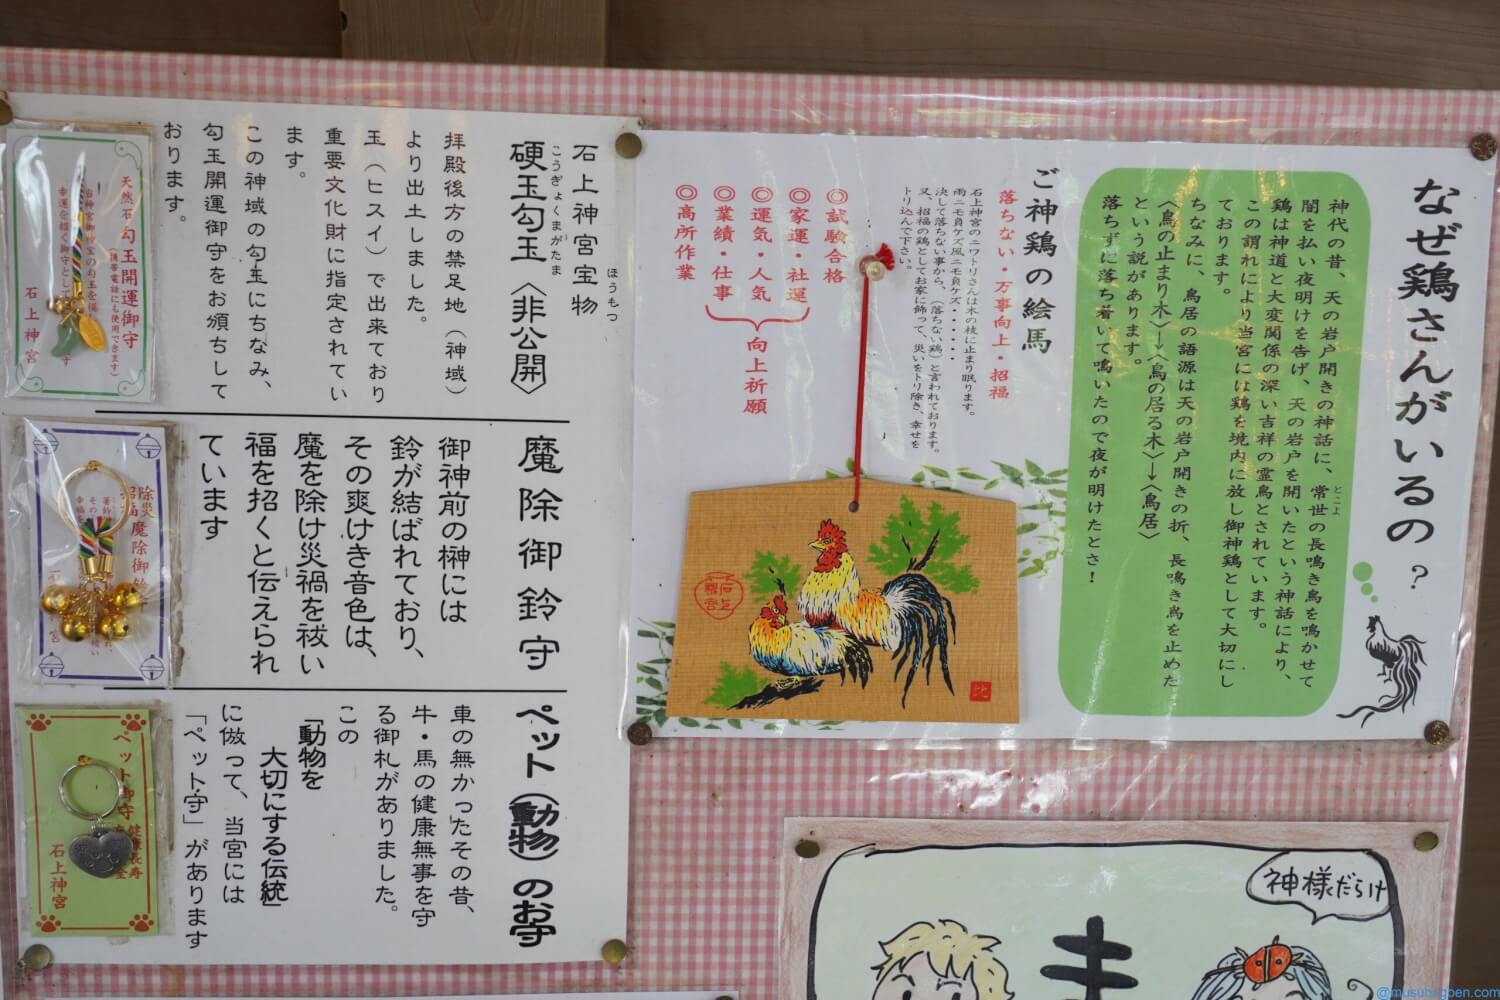 なぜ鶏さんがいるの?
神代の昔、天の岩戸開きの神話に、常世の長鳴き鳥を鳴かせて
とこよ
闇を払い夜明けを告げ、天の岩戸を開いたという神話により、
鶏は神道と大変関係の深い吉祥の霊鳥とされています。
この謂れにより当宮には鶏を境内に放し御神鶏として大切にし
ております。
ちなみに、鳥居の語源は天の岩戸開きの折、長鳴き鳥を止めた
〈鳥の止まり木〉→〈鳥の居る木〉→〈鳥居〉
という説があります。
落ちずに落ち着いて鳴いたので夜が明けたとさ!
ご神鶏の絵馬
落ちない・万事向上・招福
石上神宮のニワトリさんは木の枝に止まり眠ります。
雨ニモ負ケズ風ニモ負ケズ・・・・・
決して落ちない事から、(落ちない鶏)と言われております。
又、招福の鶏としてお家に飾って、災いをトリ除き、幸せを
トリ込んで下さい。
◎試験合格
◎家運・社運
◎運気・人気
◎業績・仕事
◎高所作業
向上祈願
石上神宮宝物
ほうもつ
硬玉勾玉〈非公開〉
こうぎょくまがたま
拝殿後方の禁足地(神域)
より出土しました。
玉(ヒスイ)で出来ており
重要文化財に指定されてい
ます。
この神域の勾玉にちなみ、
勾玉開運御守をお頒ちして
おります。
天然石勾玉開運御守
(携帯電話にも使用できます)
石上神宮
魔除御鈴守
御神前の榊には
鈴が結ばれており、
その爽けき音色は、
魔を除け災禍を祓い
福を招くと伝えられ
ています
除災
招福
魔除御鈴
ペット(動物)のお守
車の無かったその昔、
牛・馬の健康無事を守
る御札がありました。
この
「動物を
大切にする伝統」
に倣って、当宮には
「ペット守」があります
ペット御守
健康長寿
石上神宮
神様だらけ
@musubi-goen.com